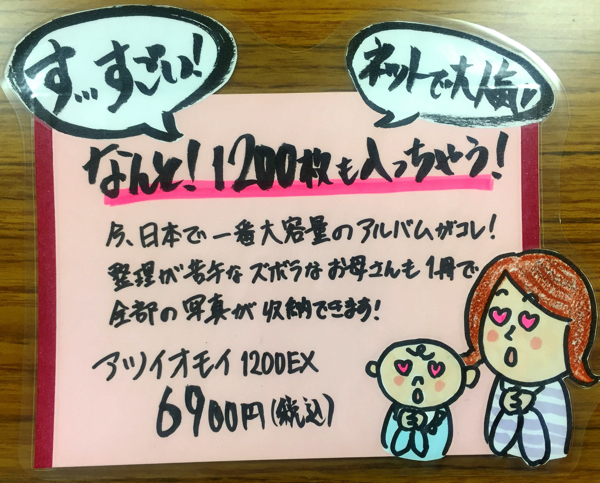 す…すごい!
ネットで大人気!
なんと!1200枚も入っちゃう!
今、日本で一番大容量のアルバムがコレ!
整理が苦手なズボラなお母さんも1冊で
全部の写真が収納できます!
アツイオモイ1200EX
6900円(税込)